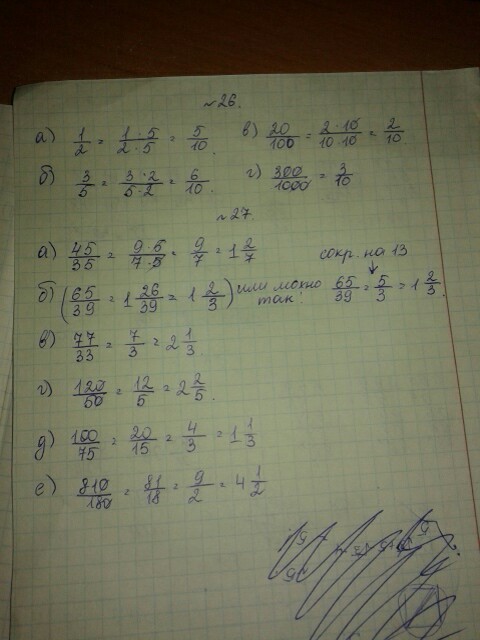 №26.
а) 1/2 = 1·5/2·5 = 5/10 в) 20/100 = 2·10/10·10 = 2/10.
б) 3/5 = 3·2/5·2 = 6/10. г) 300/1000 = 3/10
№27.
а) 45/35 = 9·5/7·5 = 9/7 = 1 2/7
сокр. на 13
б) (65/39 = 1 26/39 = 1 2/3) или можно так: 65/39 = 5/3 = 1 2/3.
в) 77/33 = 7/3 = 2 1/3.
г) 120/50 = 12/5 = 2 2/5.
д) 100/75 = 20/15 = 4/3 = 1 1/3
е) 810/180 = 81/18 = 9/2 = 4 1/2